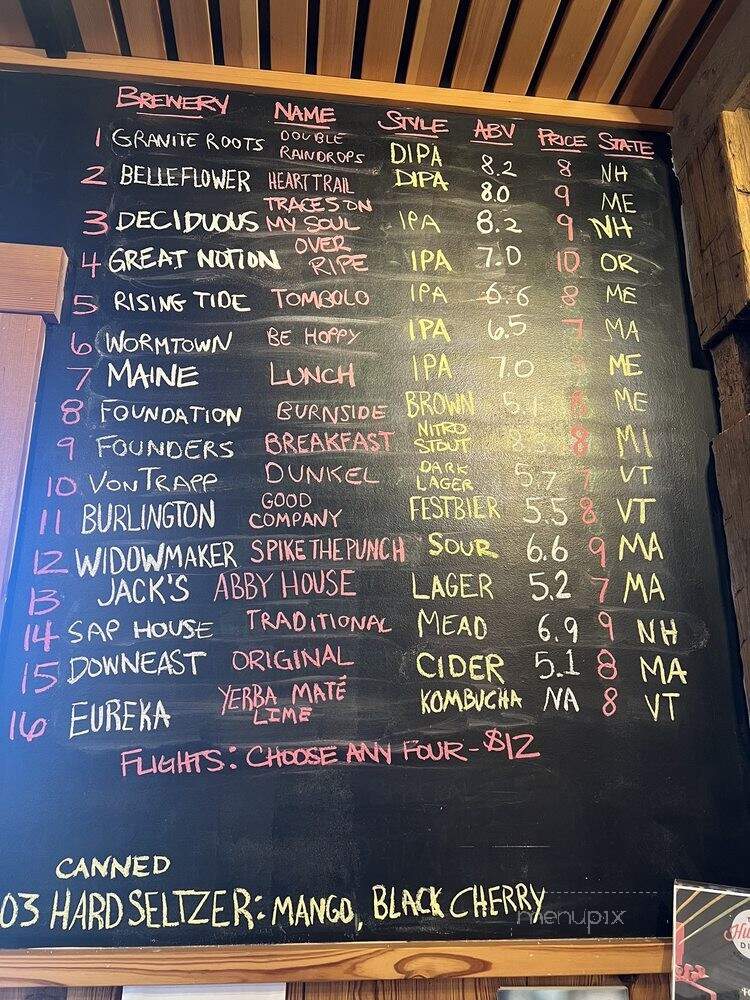 BREWERY NAME STYLE ABV PRICE STATE
1 GRANITE ROOTS DOUBLE RAINDROPS DIPA 8.2 8 NH
2 BELLEFLOWER HEARTTRAIL DIPA 8.0 9 ME
3 DECIDUOUS TRACES ON MY SOUL IPA 8.2 9 NH
4 GREAT NOTION OVER RIPE IPA 7.0 10 OR
5 RISING TIDE TOMBOLO IPA 6.6 8 ME
6 WORMTOWN BE HOPPY IPA 6.5 7 MA
7 MAINE LUNCH IPA 7.0 ME
8 FOUNDATION BURNSIDE BROWN 8 ME
9 FOUNDERS BREAKFAST NITRO STOUT 8 MI
10 VONTRAPP DUNKEL DARK LAGER 5.7 7 VT
11 BURLINGTON GOOD COMPANY FESTBIER 5.5 8 VT
12 WIDOWMAKER SPIKE THE PUNCH SOUR 6.6 9 MA
13 JACK'S ABBY HOUSE LAGER 5.2 7 MA
14 SAP HOUSE TRADITIONAL MEAD 6.9 9 NH
15 DOWNEAST ORIGINAL CIDER 5.1 8 MA
16 EUREKA YERBA MATÉ LIME KOMBUCHA NA 8 VT
FLIGHTS: CHOOSE ANY FOUR - $12
CANNED
03 HARD SELTZER: MANGO, BLACK CHERRY
menupix